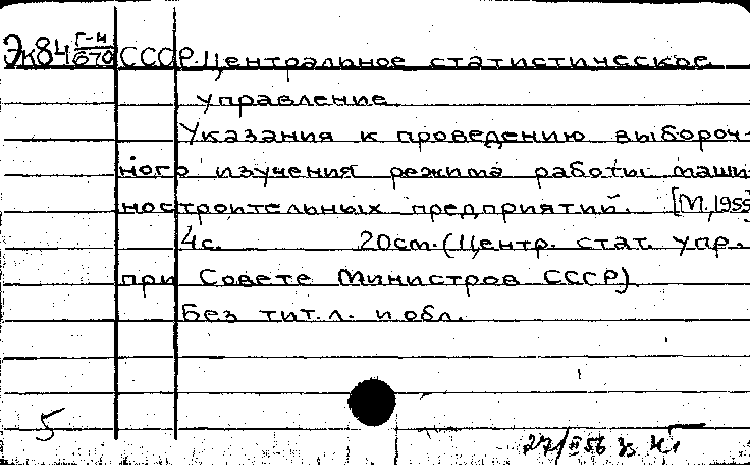 Эк84 Г-4/670 СССР. Центральное статистическое
управление.
Указания к проведению выбороч-
ного изучения режима работы маши
ностроительных предприятий. [М., 1955
4с. 20см. (Центр. стат. упр.
при Совете Министров СССР)
Без тит. л. и обл.
5
27/III 56